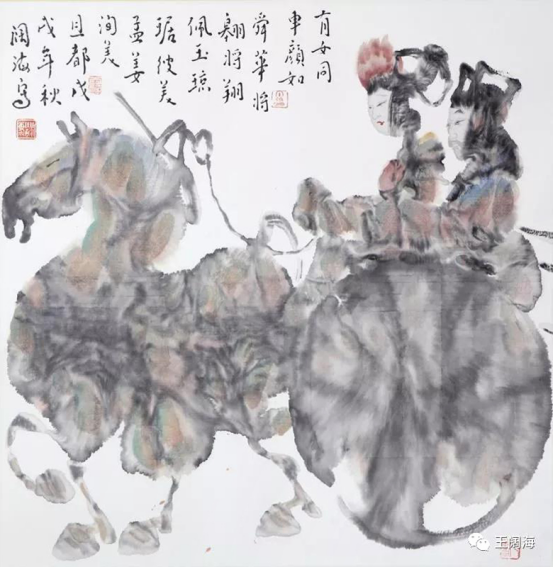 有女同
車顏如
舜華将
翱将翔
佩玉琼
琚彼美
孟姜
洵美
且都戊
戌年秋
阔海写
王阔海